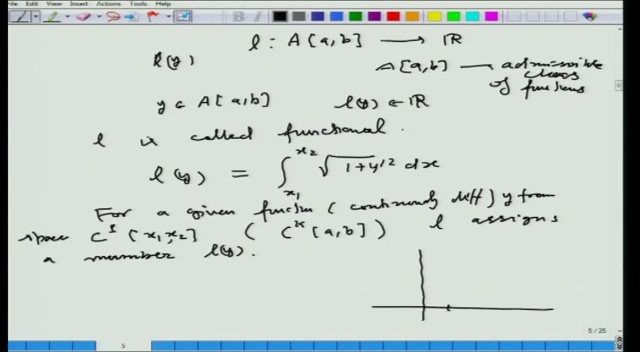 File Edit View Insert Actions Tools Help
l : A[a,b] → ℝ
l(y)
A[a,b] — admissible class of functions
y ∈ A[a,b] l(y) ∈ ℝ
l is called functional.
l(y) = ∫_{x₁}^{x₂} √(1+y'²) dx
For a given function (continuously diff) y from
space C¹[x₁,x₂] (C^k[a,b]) l assigns
a number l(y).
5 / 25